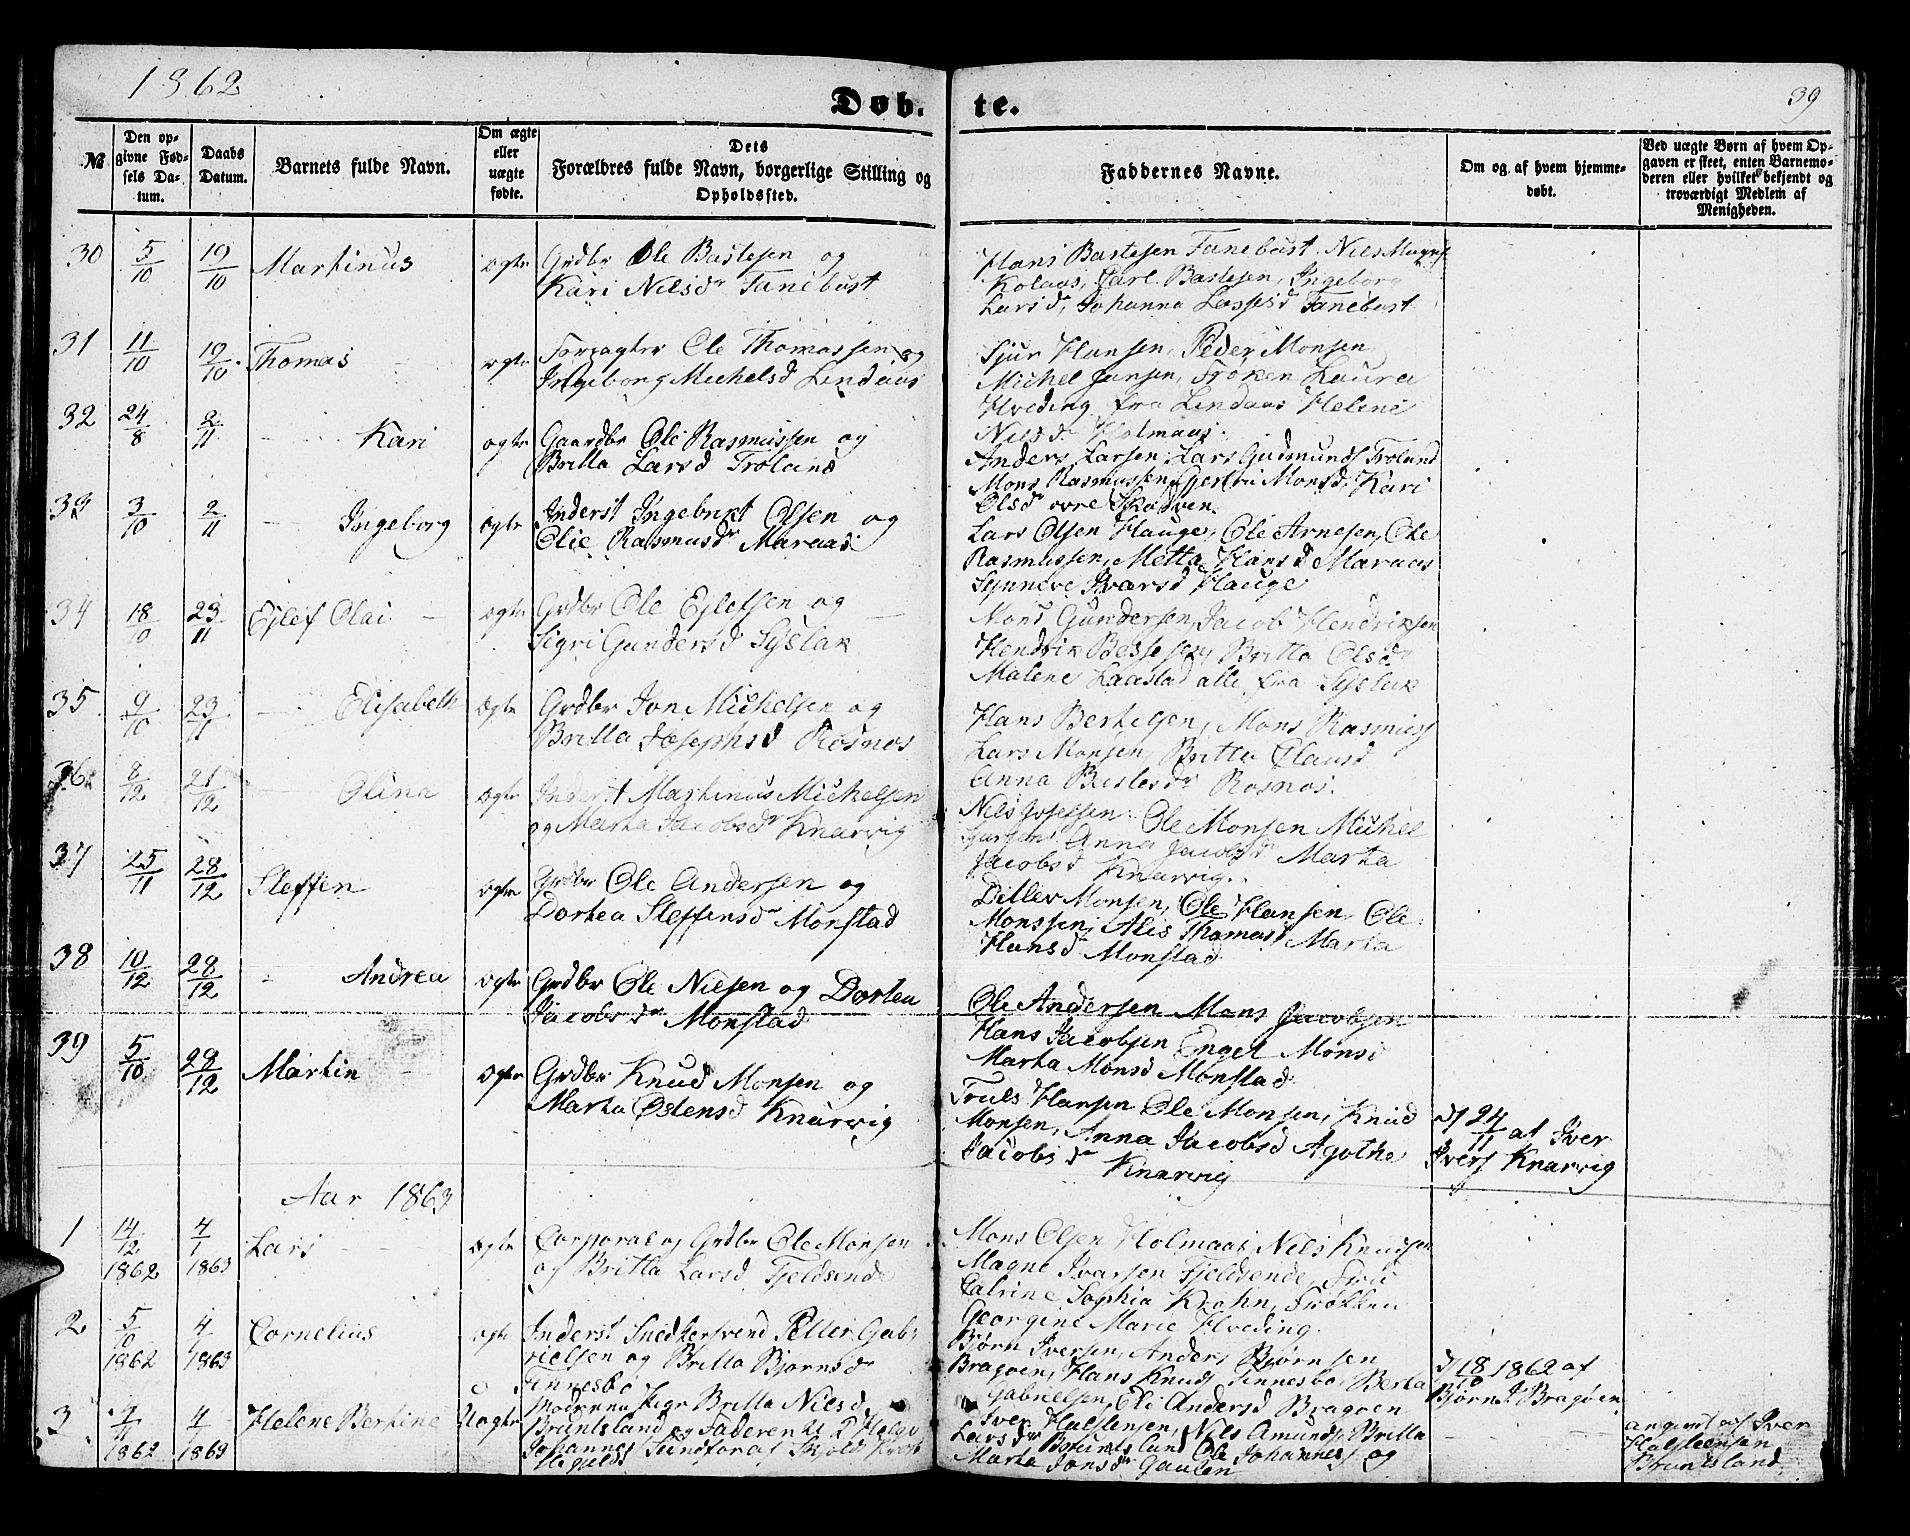 1862
Døb. te.
39
№
Den op-
givne Fød-
sels Da-
tum.
Daabs
Datum.
Barnets fulde Navn.
Om ægte
eller
uægte
fødte.
Dets
Forældres fulde Navn, borgerlige Stilling og
Opholdssted.
Faddernes Navne.
Om og af hvem hjemme-
døbt.
Ved uægte Børn af hvem Op-
gaven er skeet, enten Barnemo-
deren eller hvilket bekjendt og
troværdigt Medlem af
Menigheden.
30 5/10 19/10 Martinus ægte Grdbr Ole Bastesen og
Kari Nilsdr Fanebust
Hans Bastesen Fanebust, Nils Magns
Kolaas, Carl Bastesen, Ingeborg
Larsd, Johanna Lassesd Fanebust
31 11/10 19/10 Thomas ægte Forpagter Ole Thomassen og
Ingeborg Michelsd Lindaas
Sjur Hansen, Peder Monsen
Michel Jansen, Frøken Laura
Hveding fra Lindaas Helene
Nilsdr Holmaas
32 24/8 2/11 Kari ægte Gaardbr Ole Rasmussen og
Britta Larsd Troland
Anders Larsen, Lars Gudmunds Troland
Mons Rasmussen, Gjertru Monsd, Kari
Olsdr øvre
33 3/10 2/11 Ingeborg ægte Inderst Ingebrikt Olsen og
Olie Rasmusdr Maraas
Lars Olsen Hauge, Ole Arnesen, Ole
Rasmussen, Metta Hansd Maraas
Synneve Ivarsd Hauge
34 18/10 23/11 Ejlef Olai ægte Grdbr Ole Ejlefsen og
Sigri Gundersd Syslak
Mons Gundersen, Jacob Hendriksen
Hendrik Bessesen, Britta Olsdr
Malene Laastad alle fra Syslak
35 9/10 23/11 Elisabeth ægte Grdbr Jon Michelsen og
Britta Josephsd Rosnos
Hans Berthelsen, Mons Rasmuss
Lars Monsen, Britta Olausd
Anna Bastesdr Rosnos.
36 8/12 21/12 Olina ægte Inderst Martinus Michelsen
og Marta Jacobsdr Knarvig
Nils Josefsen, Ole Monsen Michel
Sjursen Anna Jacobsdr Marta
Jacobsd Knarvig.
37 25/11 28/12 Steffen ægte Grdbr Ole Andersen og
Dortea Steffensdr Monstad
Ditlev Monsen, Ole Hansen, Ole
Monssen, Alis Thomasd Marta
Hansdr Monstad
38 10/12 28/12 Andrea ægte Grdbr Ole Nilsen og Dortea
Jacobsdr Monstad
Ole Andersen Mons Jacobsen
Hans Jacobsen Engel Monsd
Marta Monsd Monstad
39 5/10 28/12 Martin ægte Grdbr Knud Monsen og
Marta Østensd Knarvig
Truls Hansen Ole Monsen, Knud
Monsen, Anna Jacobsd Agothe
Jacobsdr Knarvig
24/11 af Iver
Ivers Knarvig
Aar 1863
1 14/12 1862 4/1 1863 Lars ægte Corporal og Grdbr Ole Monsen
og Britta Larsd Fjeldsende
Mons Olsen Holmaas, Nils Knudsen
Magne Ivarsen Fjeldsende, Fru
Catrine Sophia Krohn, Frøken
Georgine Marie Hveding.
2 5/10 1862 4/1 1863 Cornelius ægte Inderst Snedkersvend Petter Gab-
rielsen og Britta Bjørnsdr
Finnesbø
Bjørn Iversen, Anders Bjørnsen
Bragøen, Hans Knuds Finnesbø, Berta
Gabrielsen, Eli Andersd Bragøen
18/10 1862 af
Bjørn I. Bragøen
3 1862 4/1 1863 Helene Berthine Uægte Moderen Pige Britta Nilsd
Bruntsland og Faderen Helge
Johannes
Iver Halstensen, Nils Amunds, Britta
Larsdr Bruntsland Ole Johanness og
Marta Jonsdr Gaulen
angivet af Iver
Halsteensen
Bruntsland